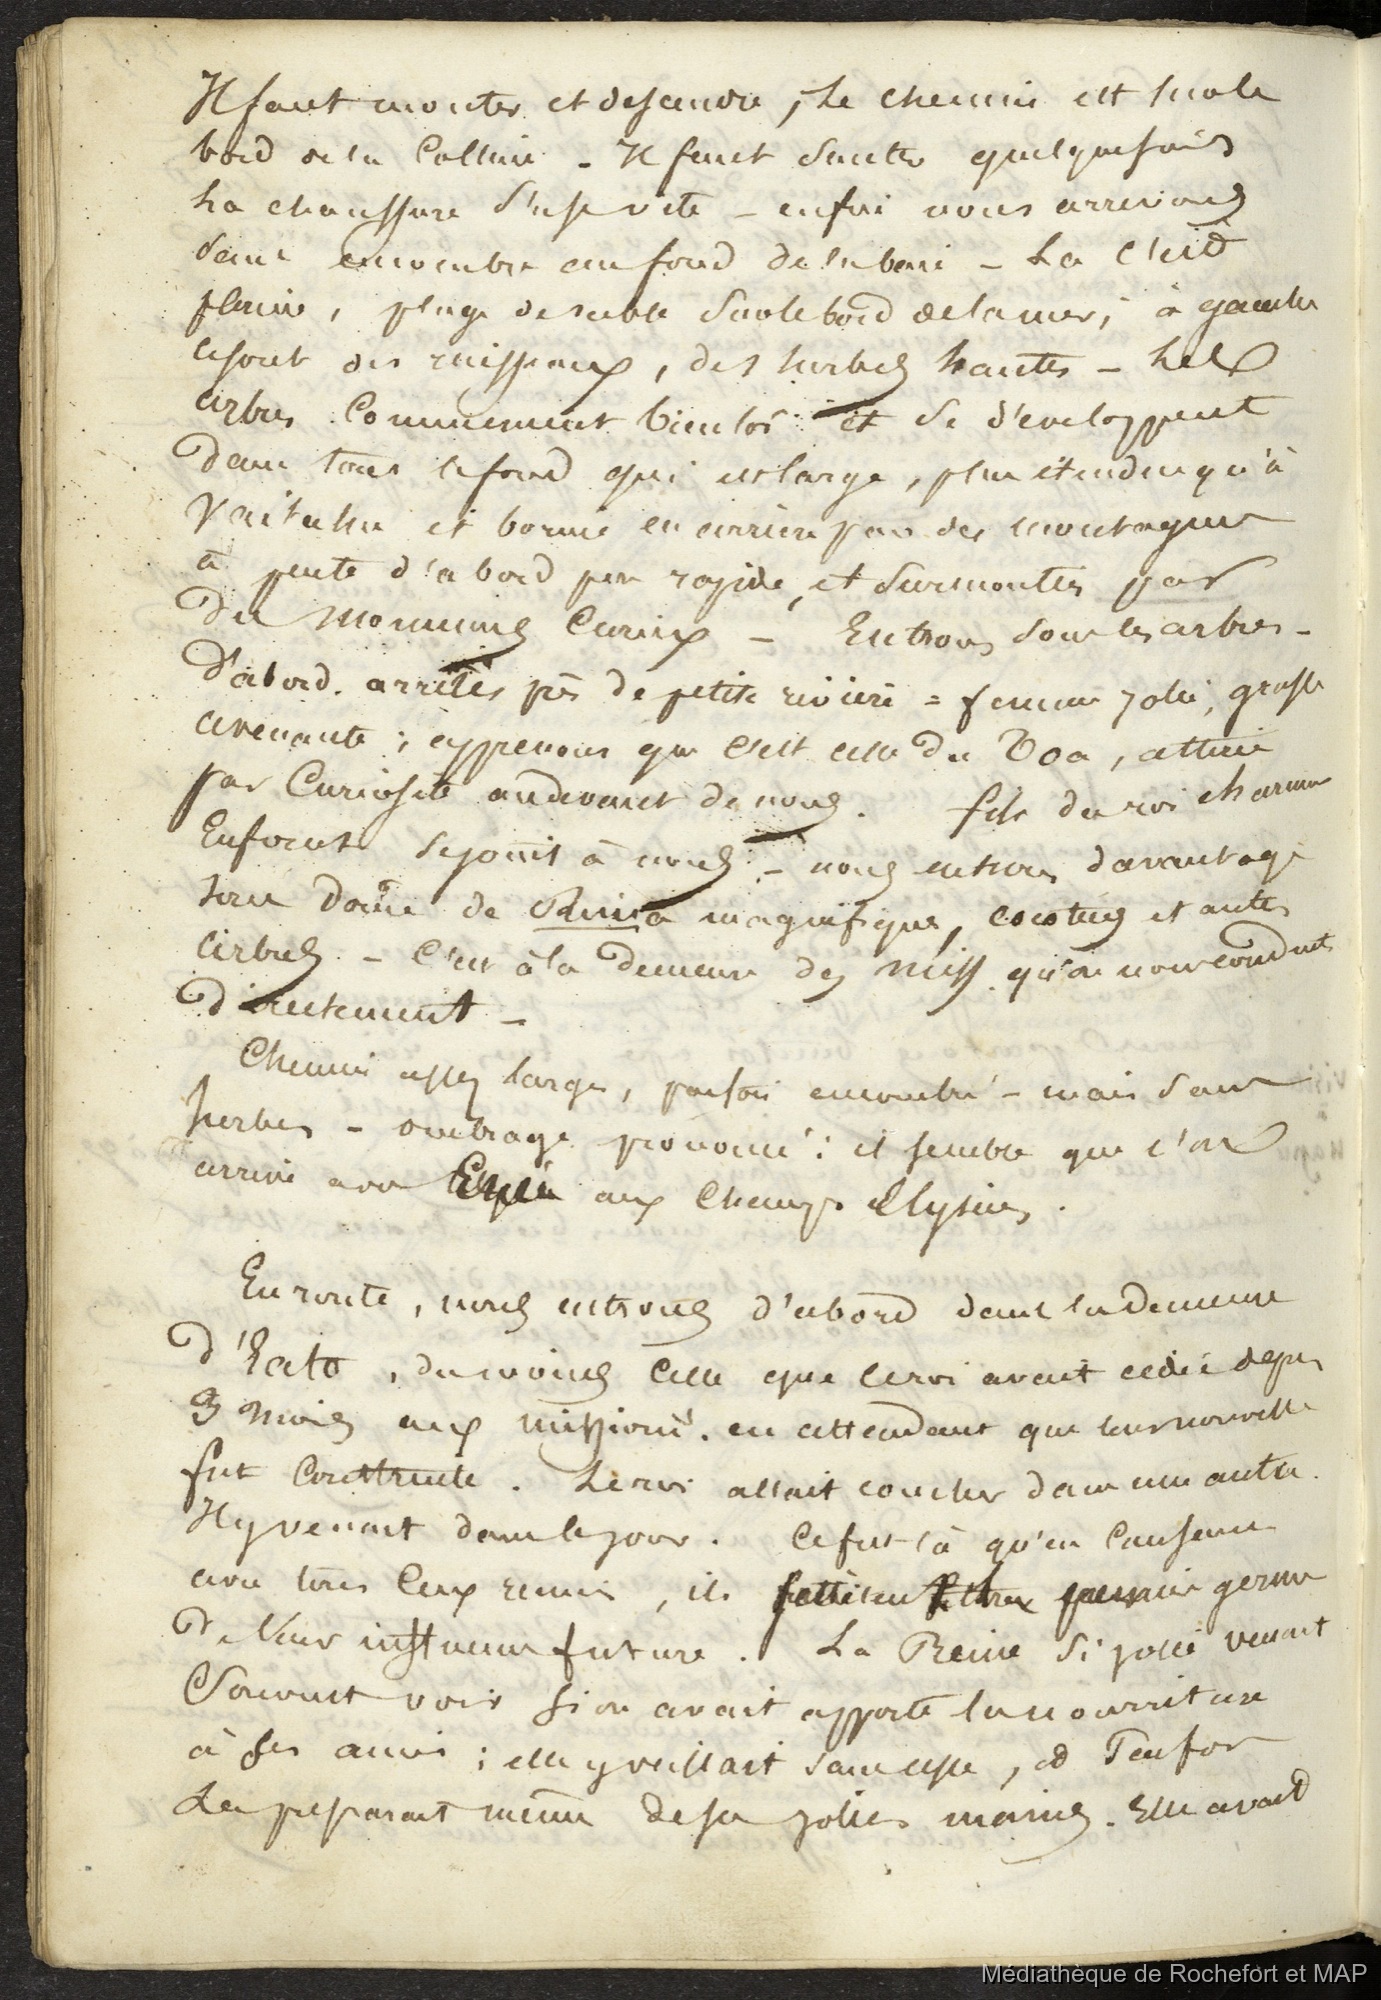 Il faut monter et descendre, le chemin est sur le
bord de la Colline - Il faut sauter quelquefois
La chaussure s'use vite - enfin nous arrivons
sans encombre au fond de la baie - La c'est
plaine, plage de sable sur le bord de la mer; à gauche
ce sont des ruisseaux, des herbes hautes - Les
arbres Commencent bientôt et se développent
dans tout le fond qui est large, plus étendu qu'à
Vaitahu et borné en arrière par des montagnes
à pente d'abord peu rapide, et surmontées par
des mornes Curieux - Entrons sous les arbres -
D'abord. arrêtés près de petite rivière = femme jolie, grasse
avenante; apprenons que c'est celle du Toa, attirée
par Curiosité au devant de nous. fils du roi charmant
Enfant se joint à nous - nous entrons davantage
sous dôme de magnifique, cocotiers et autres
arbres - C'est à la demeure des miss. qu'on nous conduit
directement -
Chemin assez large, parfois encombré - mais sans
herbes - ombrage prononcé: il semble que l'on
arrive avec aux Champs Elysées.
En route, nous entrons d'abord dans la demeure
d'Eato, du moins Celle que le roi avait cédée depuis
3 mois aux missionr. en attendant que leur nouvelle
fut Construite. Le roi allait coucher dans une autre.
Il y venait dans le jour. Ce fut là qu'en Causant
avec tous Ceux réunis, ils premier germe
de leur influence future. La Reine si jolie venait
Souvent voir si on avait apporté la nourriture
à ses amis; elle y veillait sans cesse, et
Les préparait même de ses jolies mains. Elle avait
Médiathèque de Rochefort et MAP